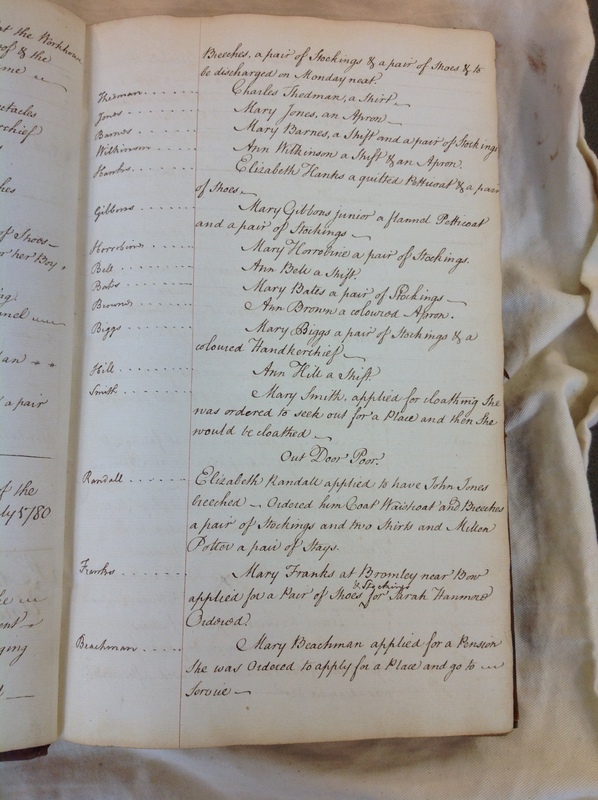 at the Workhou
of & the
me
ectacles
rchief
hes
of Shoes
or her Boy.
nel
a pair
of the
ly 5 1780
ging
Breeches, a pair of Stockings & a pair of Shoes & to
be discharged on Monday next.
Thedman . . . . . . . Charles Thedman, a Shirt
Jones . . . . . . . Mary Jones, an Apron
Barnes . . . . . . . Mary Barnes, a Shift and a pair of Stockings
Wilkinson . . . . . . . Ann Wilkinson a Shift & an Apron.
Hanks . . . . . . . Elizabeth Hanks a quilted Petticoat & a pair
of Shoes
Gibbons . . . . . . . Mary Gibbons junior a flannel Petticoat
and a pair of Stockings
Horrobine . . . . . . . Mary Horrobine a pair of Stockings.
Bell . . . . . . . Ann Bell a Shift
Bates . . . . . . . Mary Bates a pair of Stockings
Brown . . . . . . . Ann Brown a coloured Apron.
Biggs . . . . . . . Mary Biggs a pair of Stockings & a
coloured Handkerchief
Hill . . . . . . . Ann Hill a Shift
Smith . . . . . . . Mary Smith, applied for cloathing She
was ordered to seek out for a Place and then She
would be cloathed
Out Door Poor.
Randall . . . . . . . Elizabeth Randall applied to have John Jones
breeched Ordered him Coat Waistcoat and Breeches
a pair of Stockings and two Shirts and Milton
Potter a pair of Stays.
Franks . . . . . . . Mary Franks at Bromley near Bow
& Stockings
applied for a Pair of Shoes for Sarah Hanmore
Ordered.
Beachman . . . . . . . Mary Beachman applied for a Pension
She was Ordered to apply for a Place and go to
Service